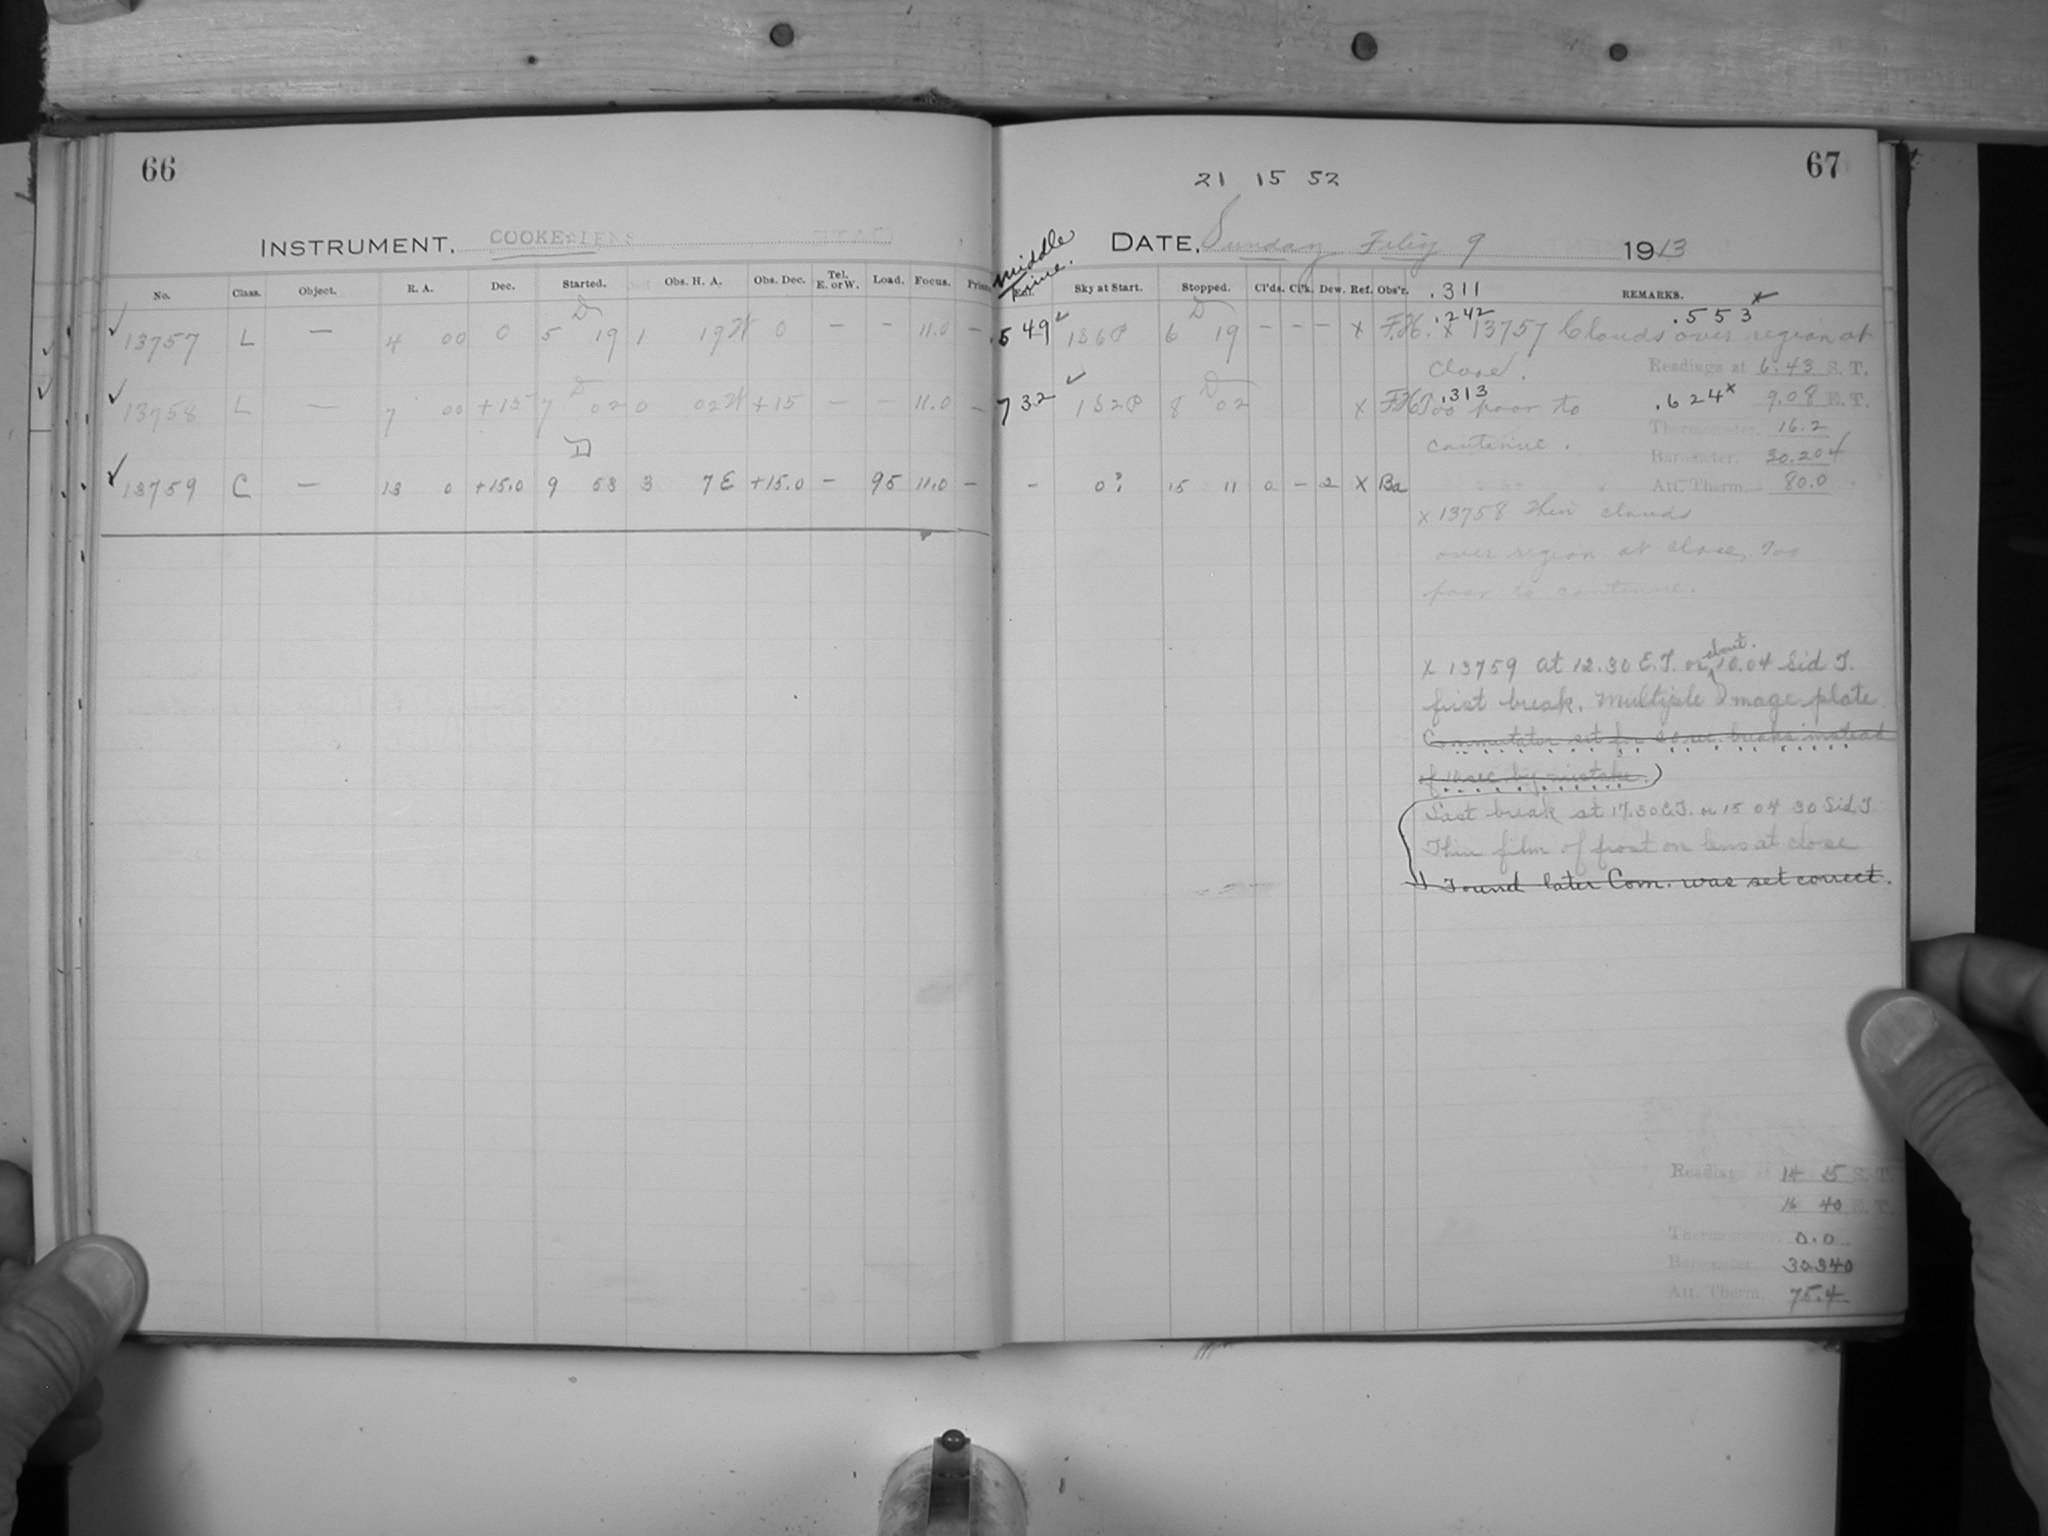 66
INSTRUMENT. COOKE LENS
No. Class. Object. R. A. Dec. Started. Obs. H. A. Obs. Dec. Tel. E. or W. Load. Focus.
13757 L — 4 00 0 5 19 1 19 W 0 — — 11.0 —
13758 L — 7 00 +15 7 02 0 02 W +15 — — 11.0 —
13759 C — 13 0 +15.0 9 53 3 7 E +15.0 — 95 11.0 —
67
21 15 52
DATE. Sunday 9 1913
middle
Sky at Start. Stopped. Cl'ds. Cl'k. Dew. Ref. Obs'r. .311 REMARKS.
.549 6 19 — — — x F.H. .242 .553 x
x 13757 Clouds over region at
close. Readings at 6.43 S. T.
732 8 02 x .313 Too poor to .624 x 9.08 E. T.
continue. Thermometer. 16.2
Barometer. 30.204
— 0? 15 11 0 — 2 X Ba Att. Therm. 80.0
x 13758 Thin clouds
over region at close, Too
poor to continue.
x 13759 at 12.30 E.T. or about 10.04 Sid T.
first break. Multiple Image plate
Commutator set for sec. breaks instead
of 10 sec. by mistake.)
Last break at 17.30 E.T. or 15 04 30 Sid. T
Thin film of frost on lens at close
Found later Com. was set correct.
Readings at 14 15 S. T.
16 40 E. T.
Thermometer. 0.0
Barometer. 30.340
Att. Therm. 75.4